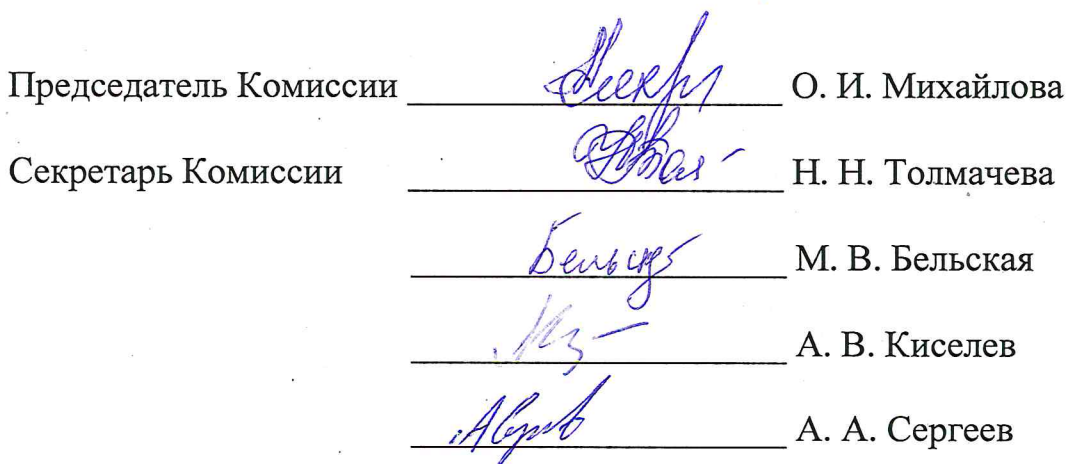 Председатель Комиссии О. И. Михайлова
Секретарь Комиссии Н. Н. Толмачева
М. В. Бельская
А. В. Киселев
А. А. Сергеев